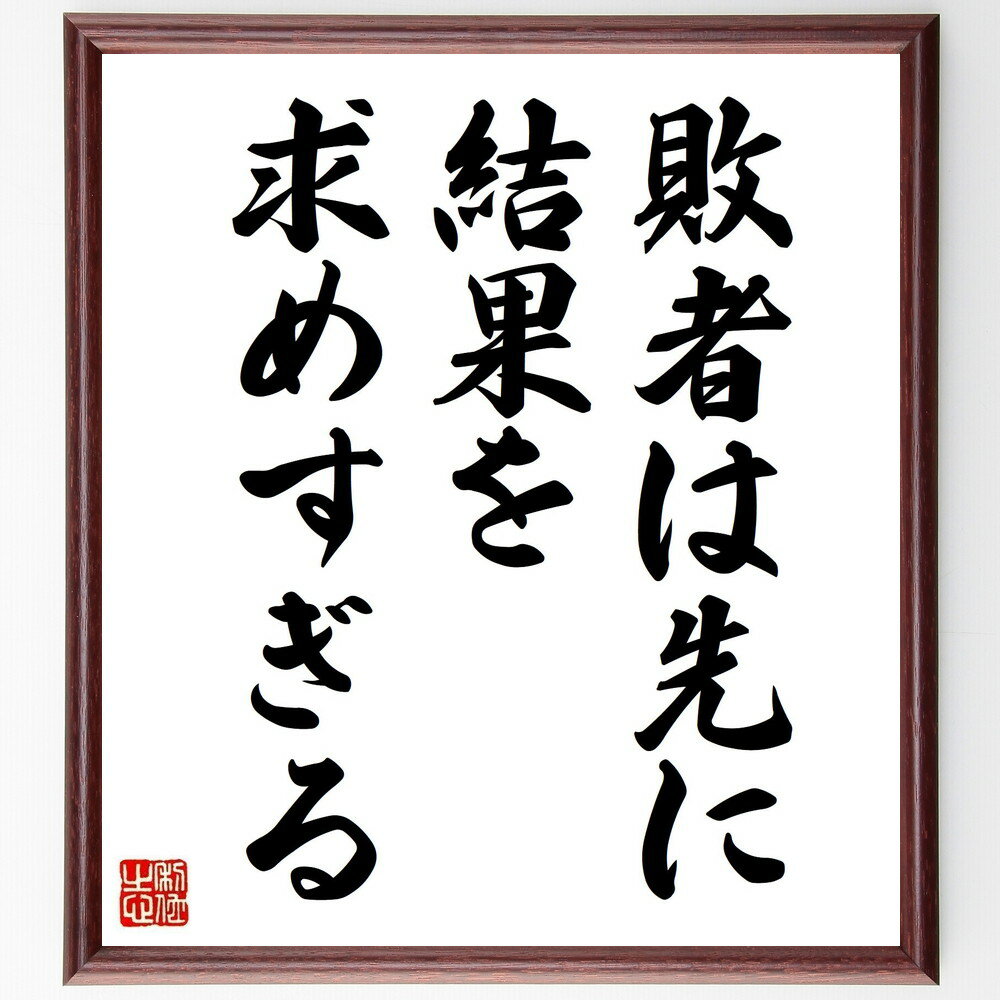 敗者は先に
結果を
求めすぎる